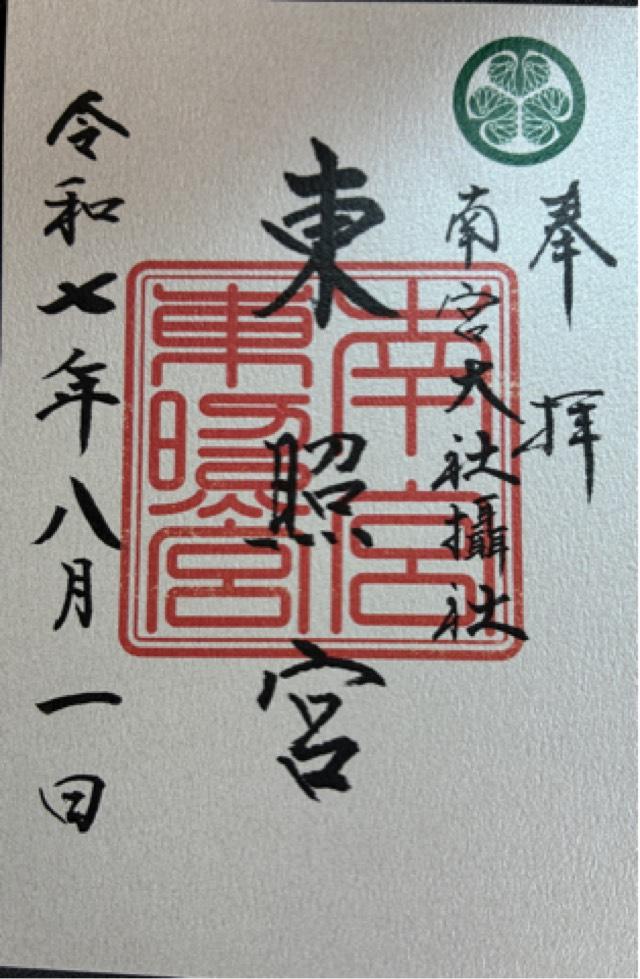 奉拝
南宮大社攝社
東照宮
南宮
東照宮
令和七年八月一日